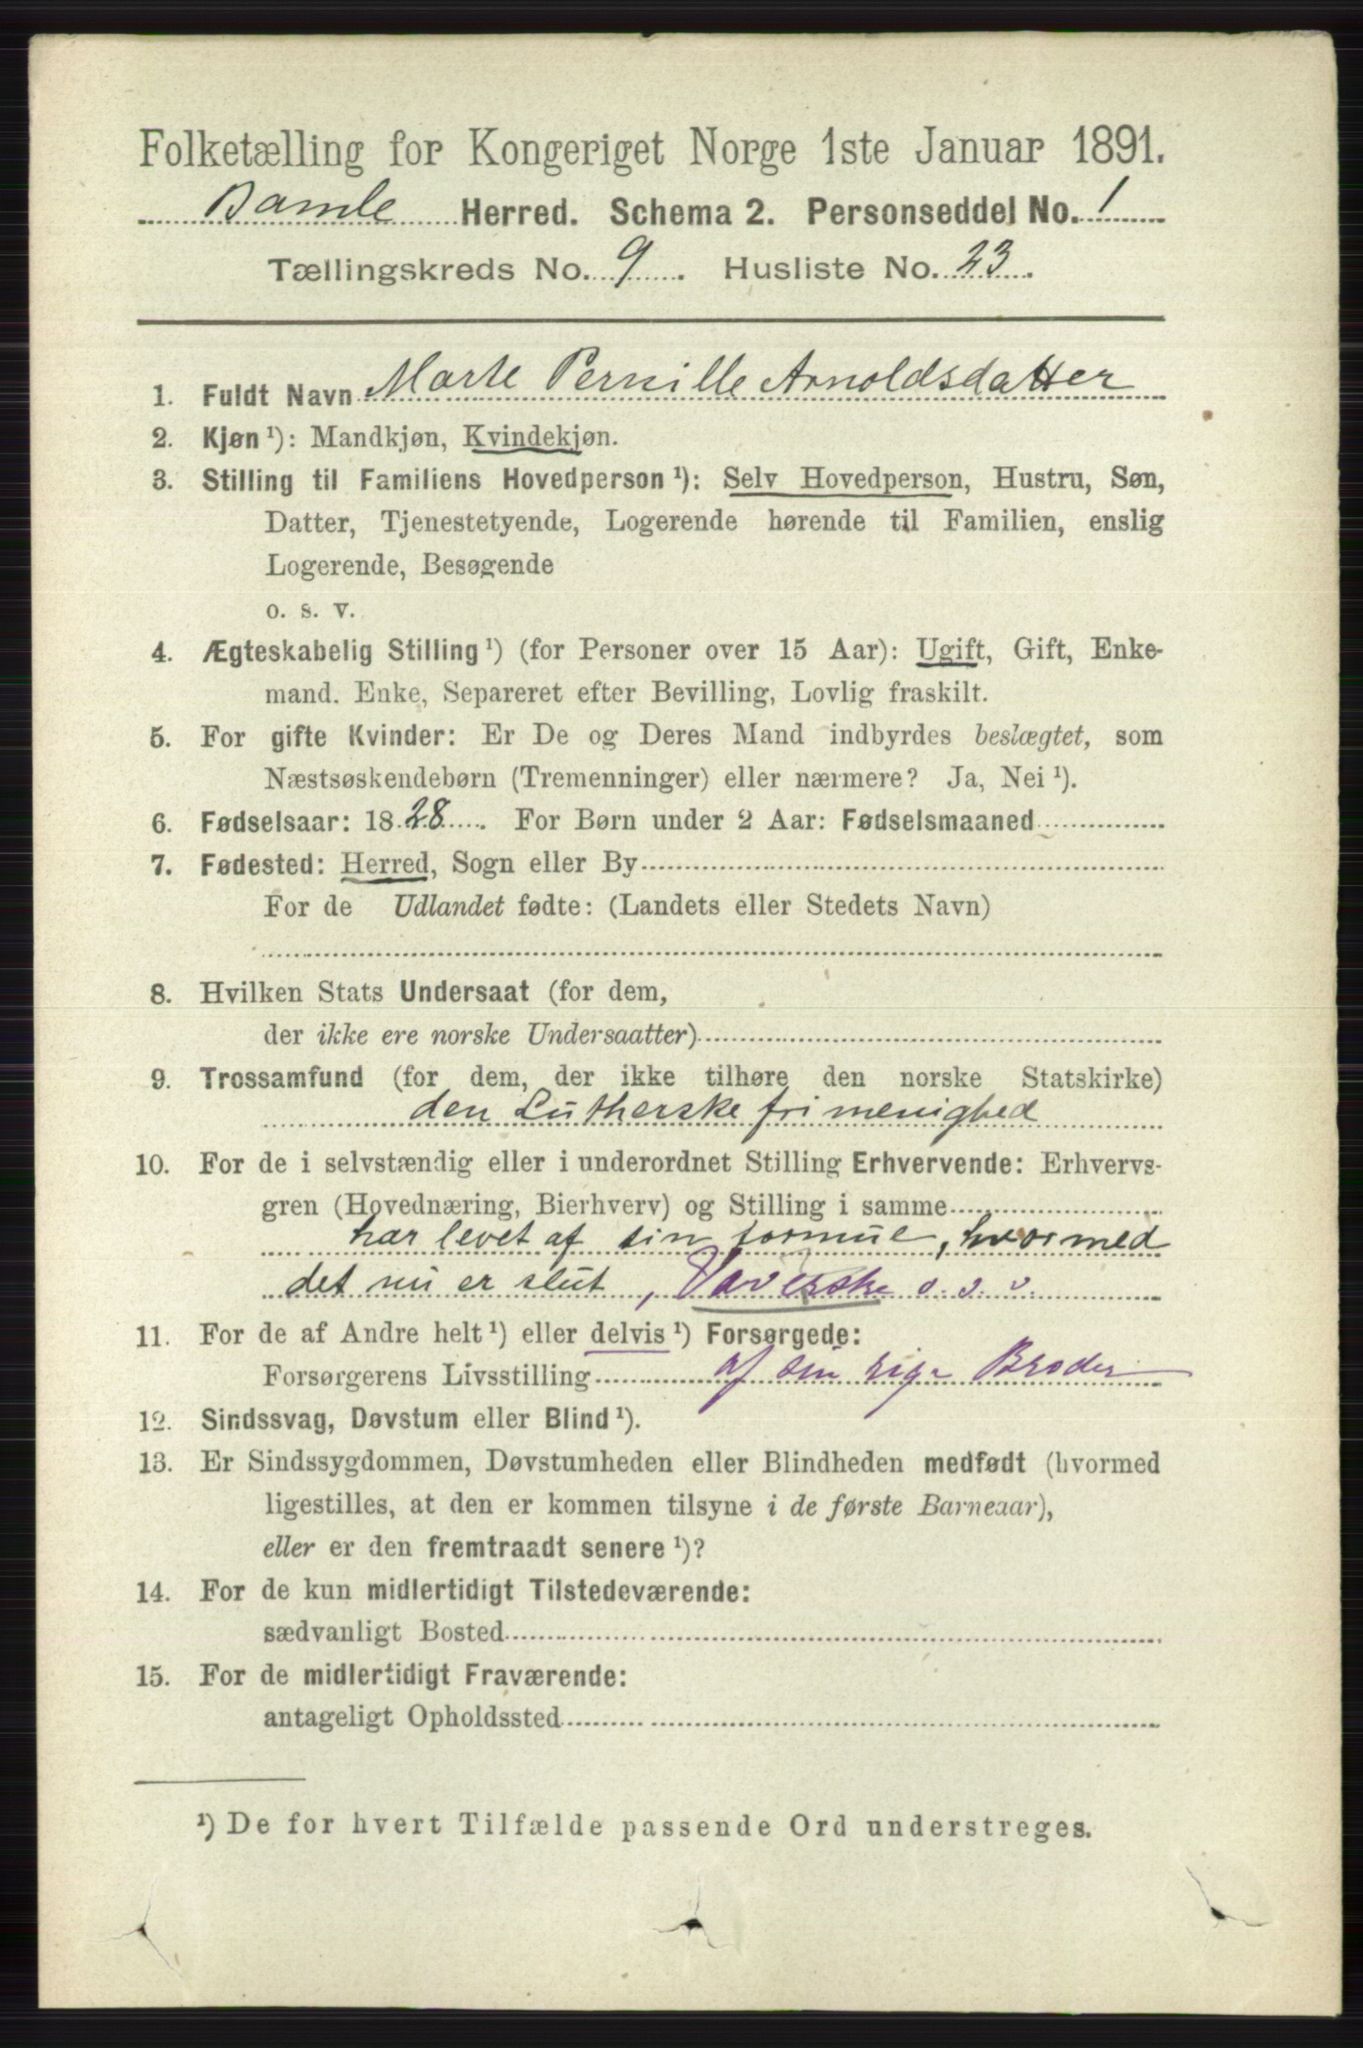 Folketælling for Kongeriget Norge 1ste Januar 1891.
Bamle Herred. Schema 2. Personseddel No. 1
Tællingskreds No. 9. Husliste No. 23.
1. Fuldt Navn Marte Pernille Arnoldsdatter
2. Kjøn ¹): Mandkjøn, Kvindekjøn.
3. Stilling til Familiens Hovedperson ¹): Selv Hovedperson, Hustru, Søn,
Datter, Tjenestetyende, Logerende hørende til Familien, enslig
Logerende, Besøgende
o. s. v.
4. Ægteskabelig Stilling ¹) (for Personer over 15 Aar): Ugift, Gift, Enke-
mand. Enke, Separeret efter Bevilling, Lovlig fraskilt.
5. For gifte Kvinder: Er De og Deres Mand indbyrdes beslægtet, som
Næstsøskendebørn (Tremenninger) eller nærmere? Ja, Nei ¹).
6. Fødselsaar: 1828. For Børn under 2 Aar: Fødselsmaaned
7. Fødested: Herred, Sogn eller By
For de Udlandet fødte: (Landets eller Stedets Navn)
8. Hvilken Stats Undersaat (for dem,
der ikke ere norske Undersaatter)
9. Trossamfund (for dem, der ikke tilhøre den norske Statskirke)
den Lutherske frimenighed
10. For de i selvstændig eller i underordnet Stilling Erhvervende: Erhvervs-
gren (Hovednæring, Bierhverv) og Stilling i samme
har levet af sin formue, hvormed
det nu er slut, Væverske o. s. v.
11. For de af Andre helt ¹) eller delvis ¹) Forsørgede:
Forsørgerens Livsstilling af sin rige Broder
12. Sindssvag, Døvstum eller Blind ¹).
13. Er Sindssygdommen, Døvstumheden eller Blindheden medfødt (hvormed
ligestilles, at den er kommen tilsyne i de første Barneaar),
eller er den fremtraadt senere ¹)?
14. For de kun midlertidigt Tilstedeværende:
sædvanligt Bosted
15. For de midlertidigt Fraværende:
antageligt Opholdssted
¹) De for hvert Tilfælde passende Ord understreges.